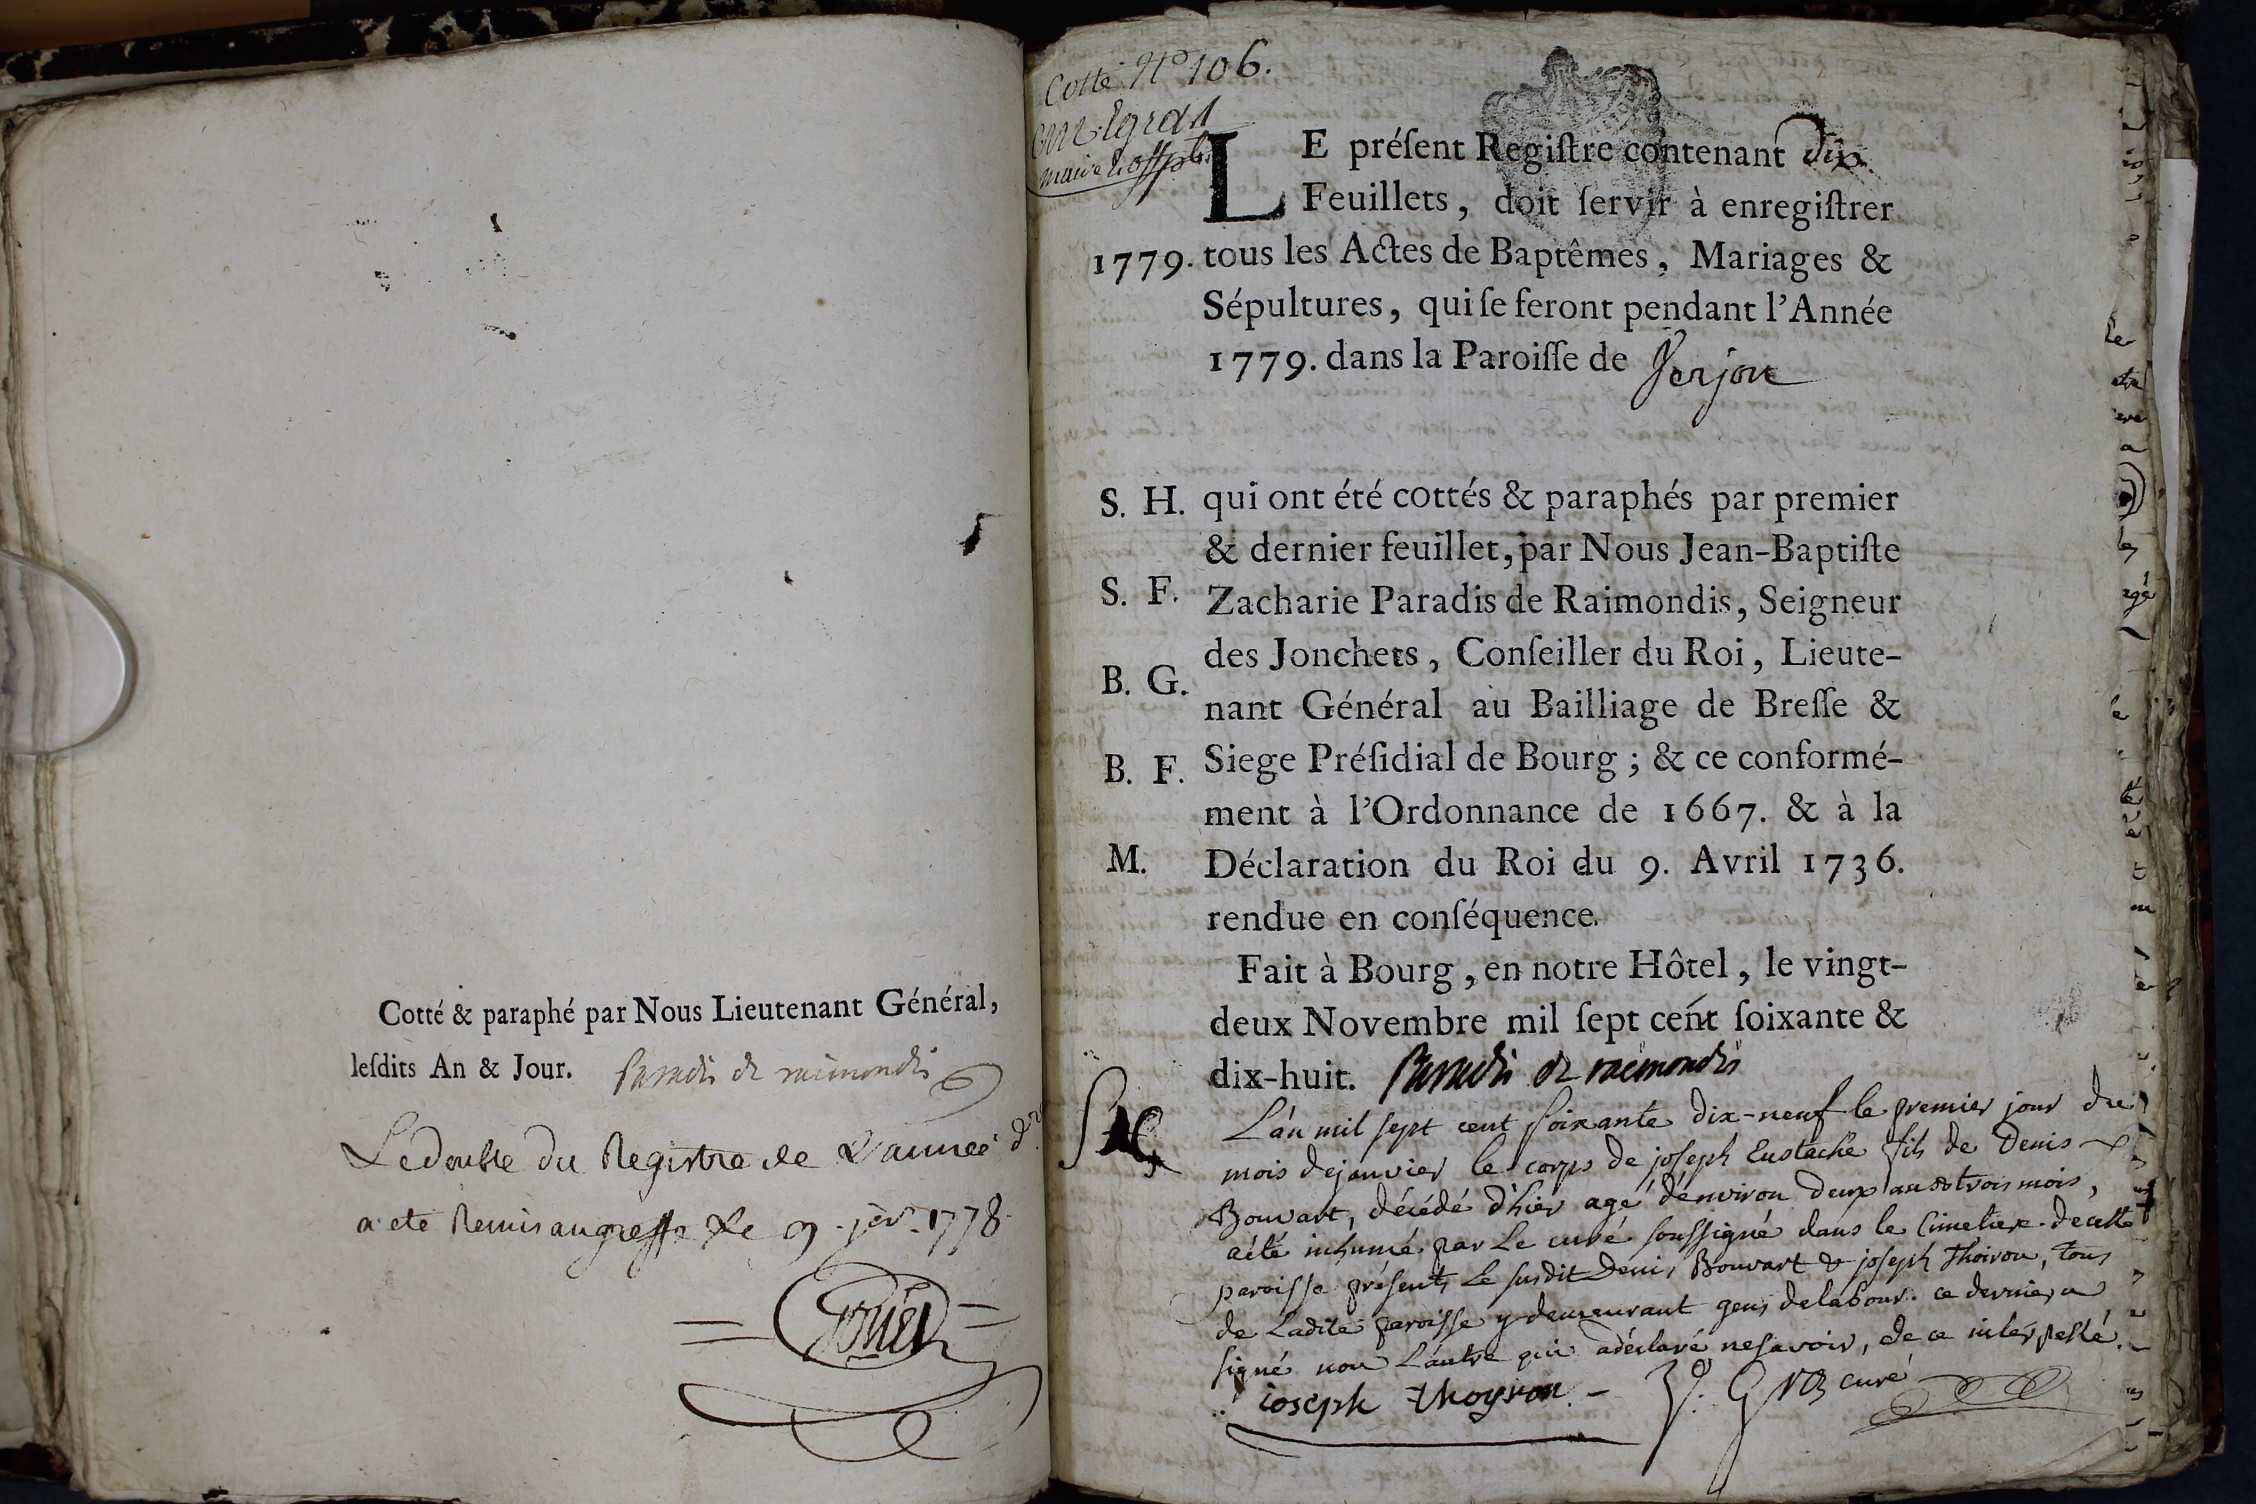 Cotté & paraphé par Nous Lieutenant Général,
leſdits An & Jour. Paradis de raimondis
Le double du Registre de L'année dre
a eté Remis au greffe Le 9 jer 1778
Cotte No 106.
maire
LE préſent Regiſtre contenant dix
Feuillets, doit ſervir à enregiſtrer
1779. tous les Actes de Baptêmes, Mariages &
Sépultures, qui ſe feront pendant l'Année
1779. dans la Paroiſſe de Verjon
S. H. qui ont été cottés & paraphés par premier
& dernier feuillet, par Nous Jean-Baptiſte
S. F. Zacharie Paradis de Raimondis, Seigneur
des Jonchets, Conſeiller du Roi, Lieute-
B. G. nant Général au Bailliage de Breſſe &
B. F. Siege Préſidial de Bourg ; & ce conformé-
ment à l'Ordonnance de 1667. & à la
M. Déclaration du Roi du 9. Avril 1736.
rendue en conſéquence.
Fait à Bourg, en notre Hôtel, le vingt-
deux Novembre mil ſept cent ſoixante &
dix-huit. Paradis de raimondis
L'an mil sept cent soixante dix-neuf le premier jour du
mois de janvier le corps de joseph Eustache fils de Denis
Bouvart, décédé d'hier agé d'environ deux ans & trois mois,
a été inhumé par Le curé soussigné dans le Cimetiere de cette
paroisse présents Le susdit Denis Bouvart & joseph Thoiron, tous
de Ladite paroisse y demeurant gens de labour. ce dernier a
signé non L'autre qui a déclaré ne savoir, de ce interpellé.
ioseph thoyron curé